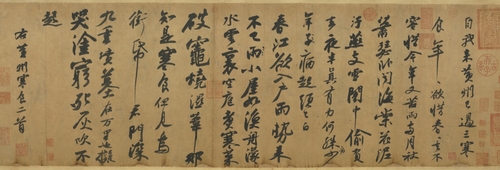 自我來黃州已過三寒
食年年欲惜春春去不
容惜今年又苦雨兩月秋
蕭瑟臥聞海棠花泥
汙燕支雪闇中偷負
去夜半真有力何殊病少
年子病起頭已白
春江欲入戶雨勢來
不已雨小屋如漁舟濛濛
水雲裏空庖煮寒菜
破竈燒濕葦那
知是寒食但見烏
銜帋君門深
九重墳墓在萬里也擬
哭塗窮死灰吹不
起
右黃州寒食二首